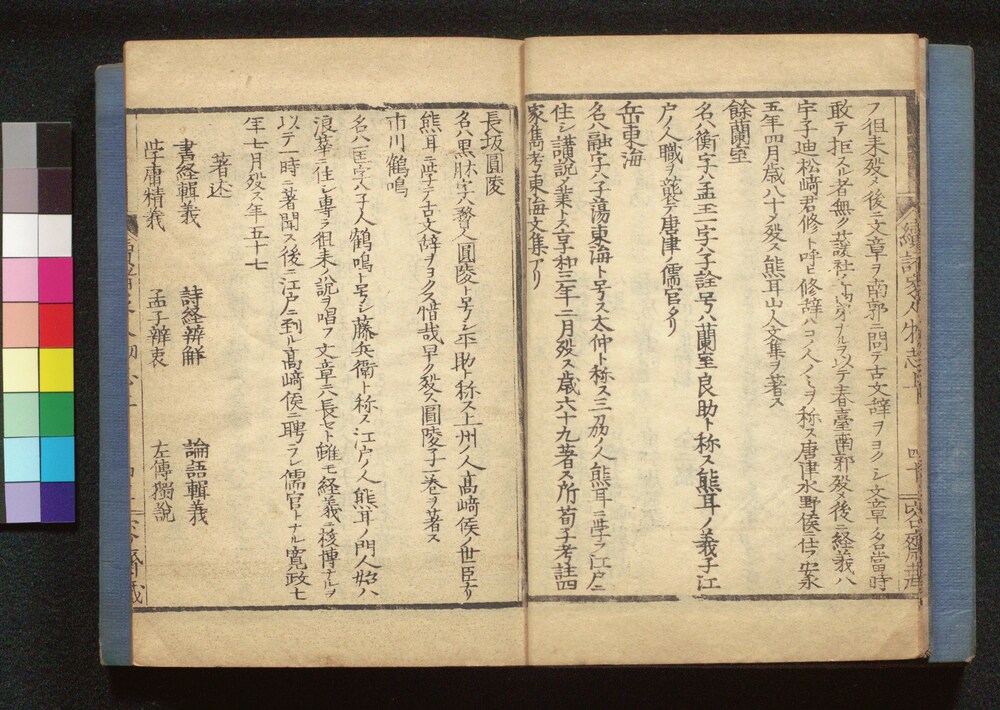 フ徂来殁メ後ニ文章ヲ南郭ニ問テ古文辞ヲヨクシ文章ノ名當時
敢テ拒スル者無ク蘐社ノ高弟ナルヲ以テ春臺南郭殁メ後ニ経義ハ
宇子迪松崎君修ト呼ヒ修辞ハコノ人ノミヲ称ス唐津水野侯ニ仕フ安永
五年四月歳八十メ殁ス熊耳山人文集ヲ著ス
餘蘭室
名ハ衡字ハ孟玉一字ハ子詮号ハ蘭室良助ト称ス熊耳ノ義子江
戸ノ人職ヲ襲テ唐津ノ儒官タリ
岳東海
名ハ融字ハ子蕩東海ト号ス太仲ト称ス三刕ノ人熊耳ニ学フ江戸ニ
住シ講説ヲ業トス享和三年二月殁ス歳六十九著ス所荀子考註四
家雋考東海文集アリ
續諸家人物志上
四十
長坂圓陵
名ハ黒肱字ハ贅人圓陵ト号シ平助ト称ス上州ノ人髙﨑侯ノ世臣ナリ
熊耳ニ学フ古文辞ヲヨクス惜哉早ク殁ス圓陵子一巻ヲ著ス
市川鶴鳴
名ハ匡字ハ子人鶴鳴ト号シ藤兵衛ト称ス江戸ノ人熊耳ノ門人始ハ
浪華ニ住シ専ラ徂来ノ説ヲ唱フ文章ニ長セト雖モ経義ニ核博ナルヲ
以テ一時ニ著聞ス後ニ江戸ニ到ル髙﨑侯ニ聘ラレ儒官トナル寛政七
年七月殁ス年五十七
著述
書経輯義 詩経辨解 論語輯義
学庸精義 孟子辨衷 左傳獨説